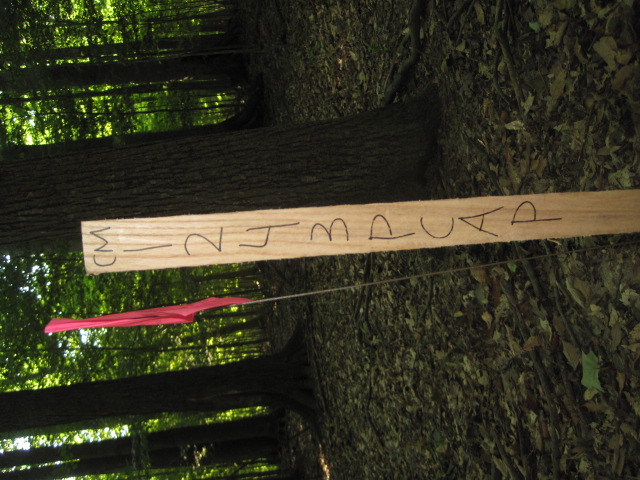 CM
1
2
4
3
P
C
A
P